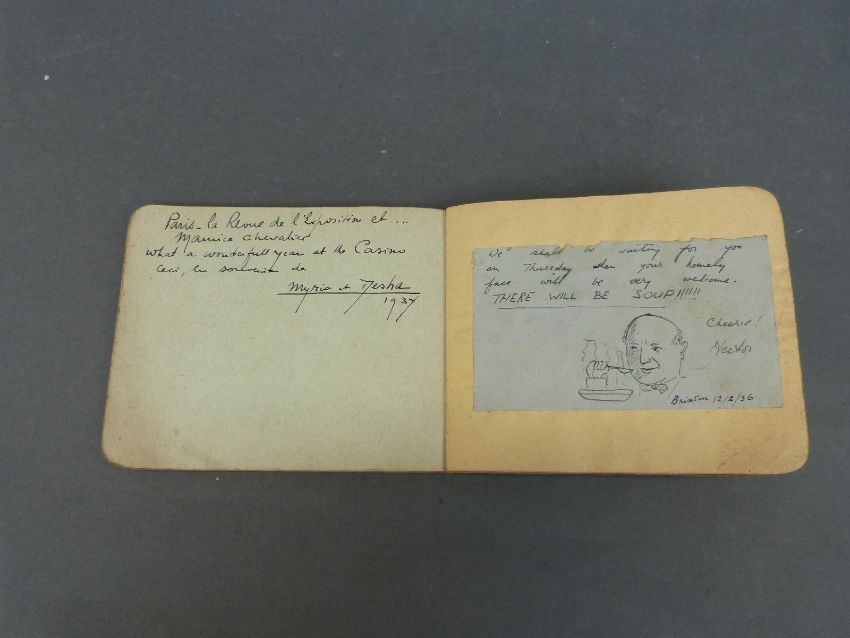 Paris - la Revue de l'Exposition et ...
Maurice Chevalier
What a wonderfull year at the Casino
Ceci, en souvenir de
Myrio et Desha
1937
We shall be waiting for you
on Thursday when your homely
face will be very welcome.
THERE WILL BE SOUP!!!!!!
Cheerio!
Hector
Brixton 12/2/36